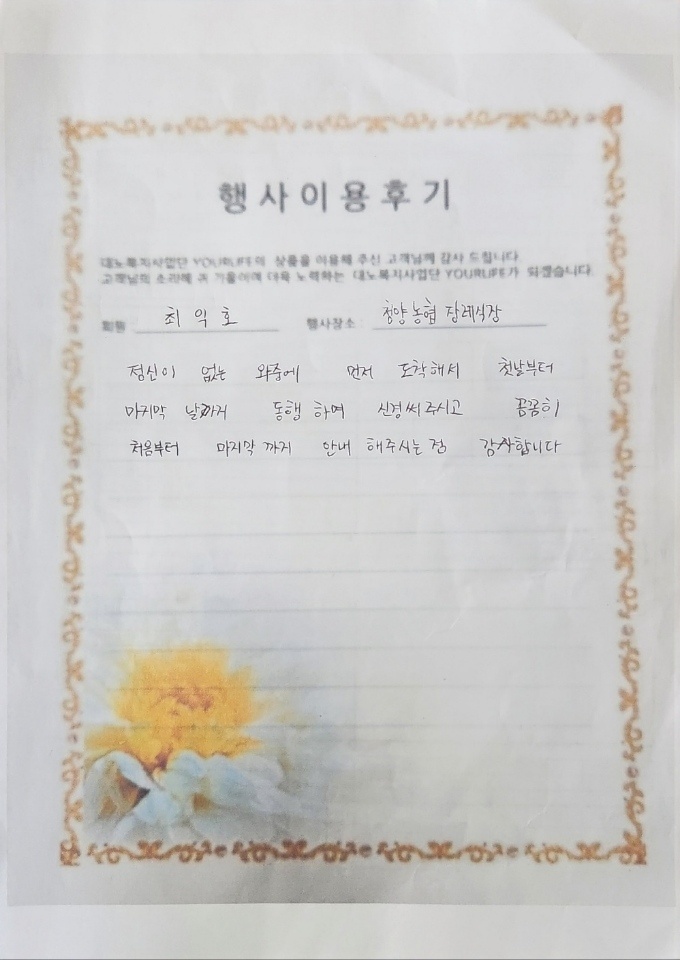 행사이용후기
대노복지사업단 YOURLIFE의 상품을 이용해 주신 고객님께 감사 드립니다.
고객님의 소리에 귀 기울이며 더욱 노력하는 대노복지사업단 YOURLIFE가 되겠습니다.
회원 최익호 행사장소 : 청양농협 장례식장
정신이 없는 와중에 먼저 도착해서 첫날부터
마지막 날까지 동행 하며 신경써주시고 꼼꼼히
처음부터 마지막 까지 안내 해주시는 점 감사합니다